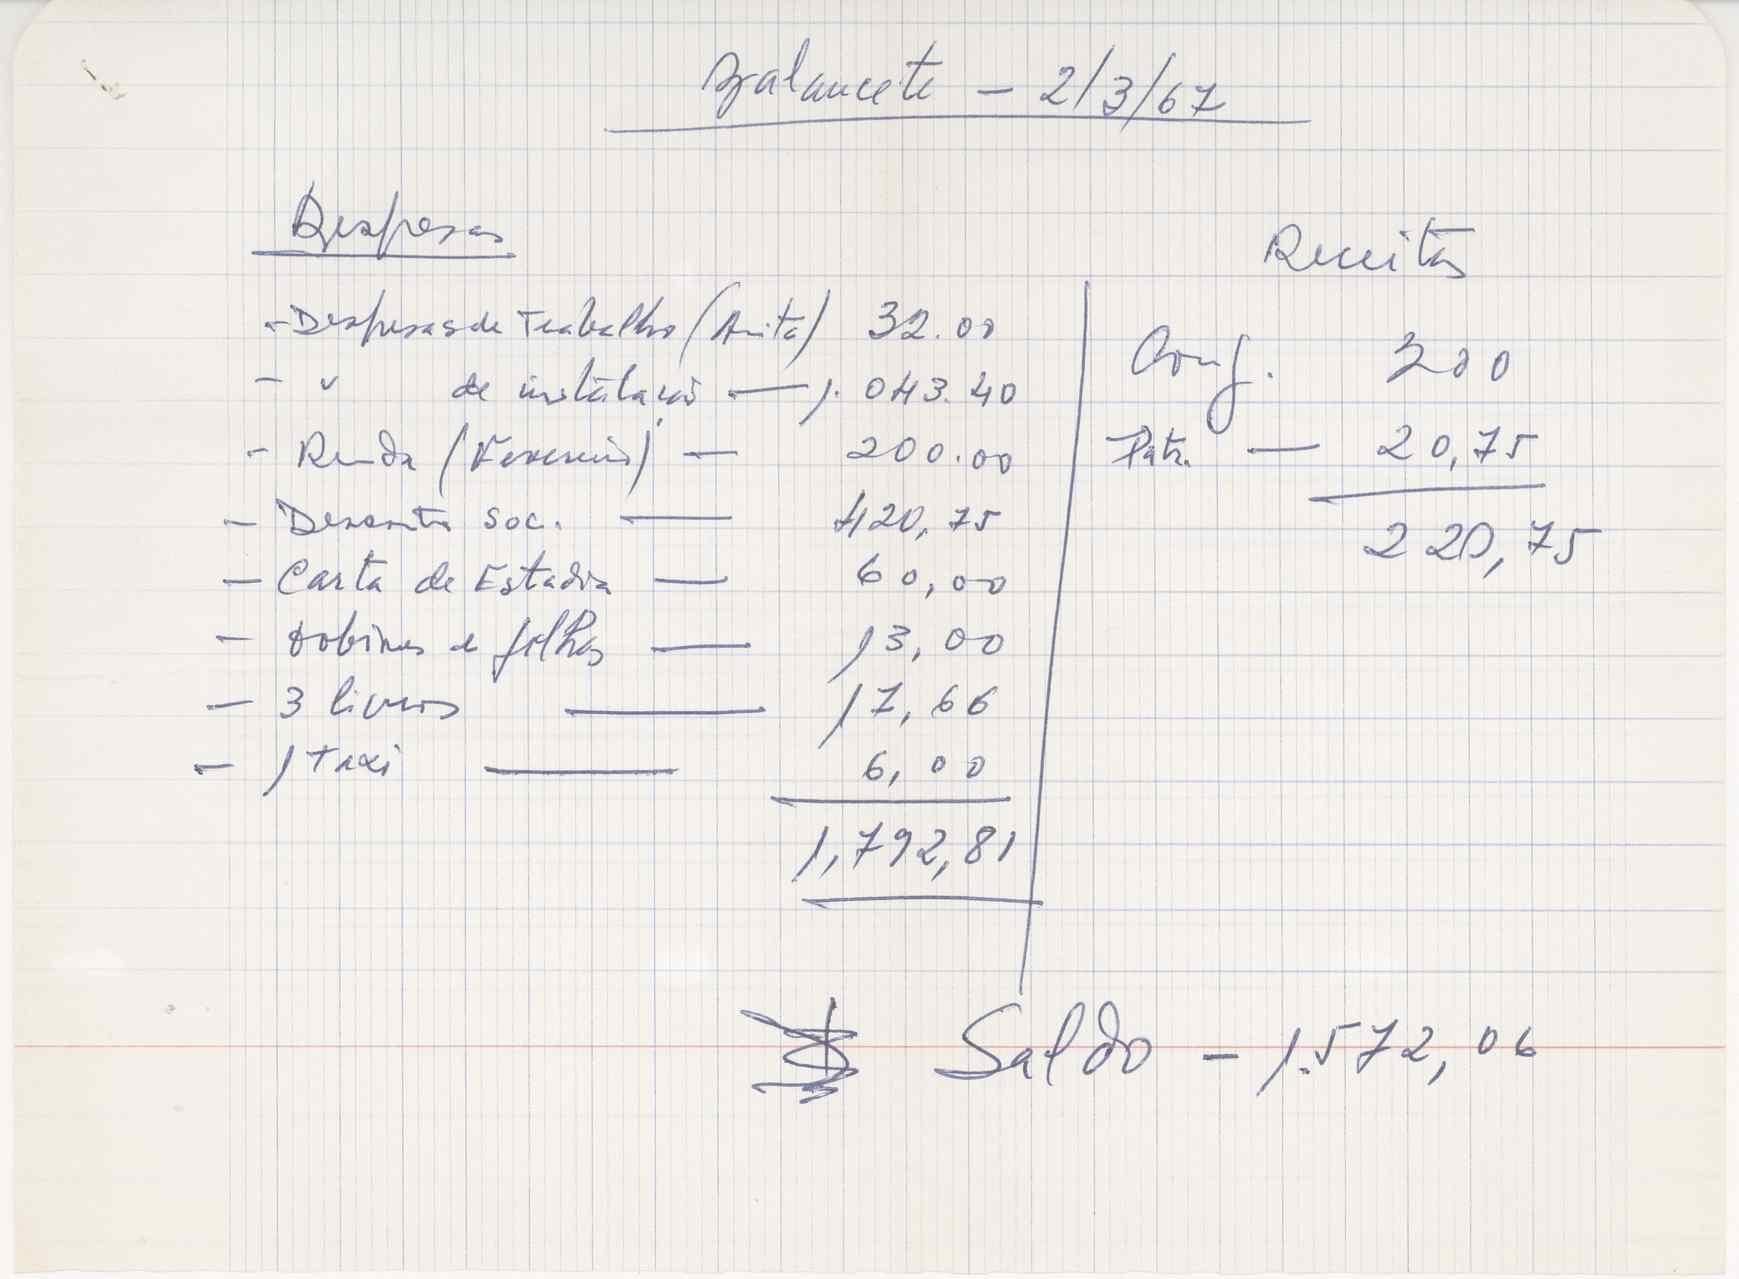 Balancete - 2/3/67
Despesas
- Despesas de Trabalho (Anita) 32.00
- " de instalação — 1.043.40
- Renda (Fevereiro) — 200.00
- Desconto soc. — 420,75
- Carta de Estadia — 60,00
- bobines e folhas — 13,00
- 3 livros — 17,66
- 1 taxi — 6,00
1,792,81
Receitas
Conf. 200
Patr. — 20,75
220,75
Saldo - 1.572,06